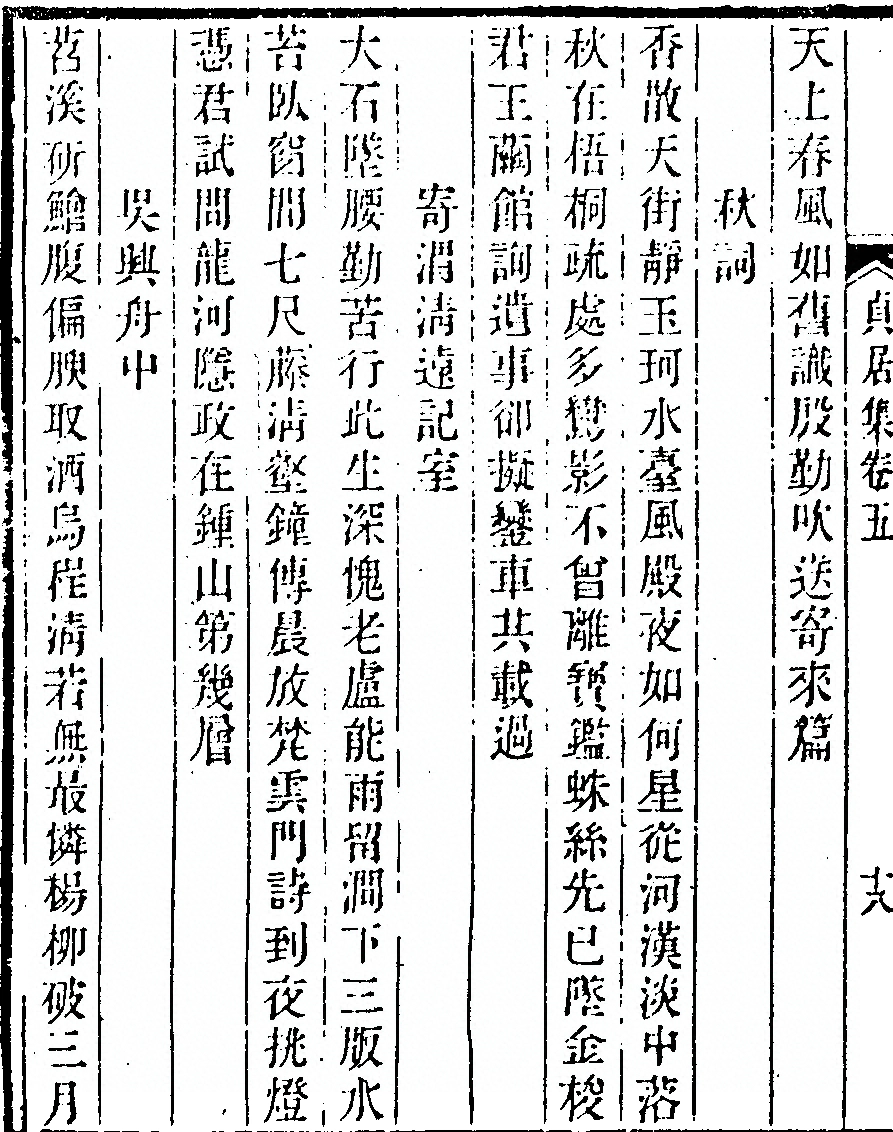 貞居集卷五
十六
天上春風如舊識殷勤吹送寄來篇
秋詞
香散天街靜玉珂水臺風殿夜如何星從河漢淡中落
秋在梧桐疏處多鸞影不曾離寶鑑蛛絲先已墜金梭
君王繭館詢遺事卻擬鑾車共載過
寄渭淸遠記室
大石墜腰勤苦行此生深愧老盧能雨留澗下三版水
苔臥窗間七尺藤淸壑鐘傳晨放梵雲門詩到夜挑燈
憑君試問龍河隱政在鍾山第幾層
吳興舟中
苕溪斫鱠腹偏腴取酒烏程淸若無最憐楊柳破三月